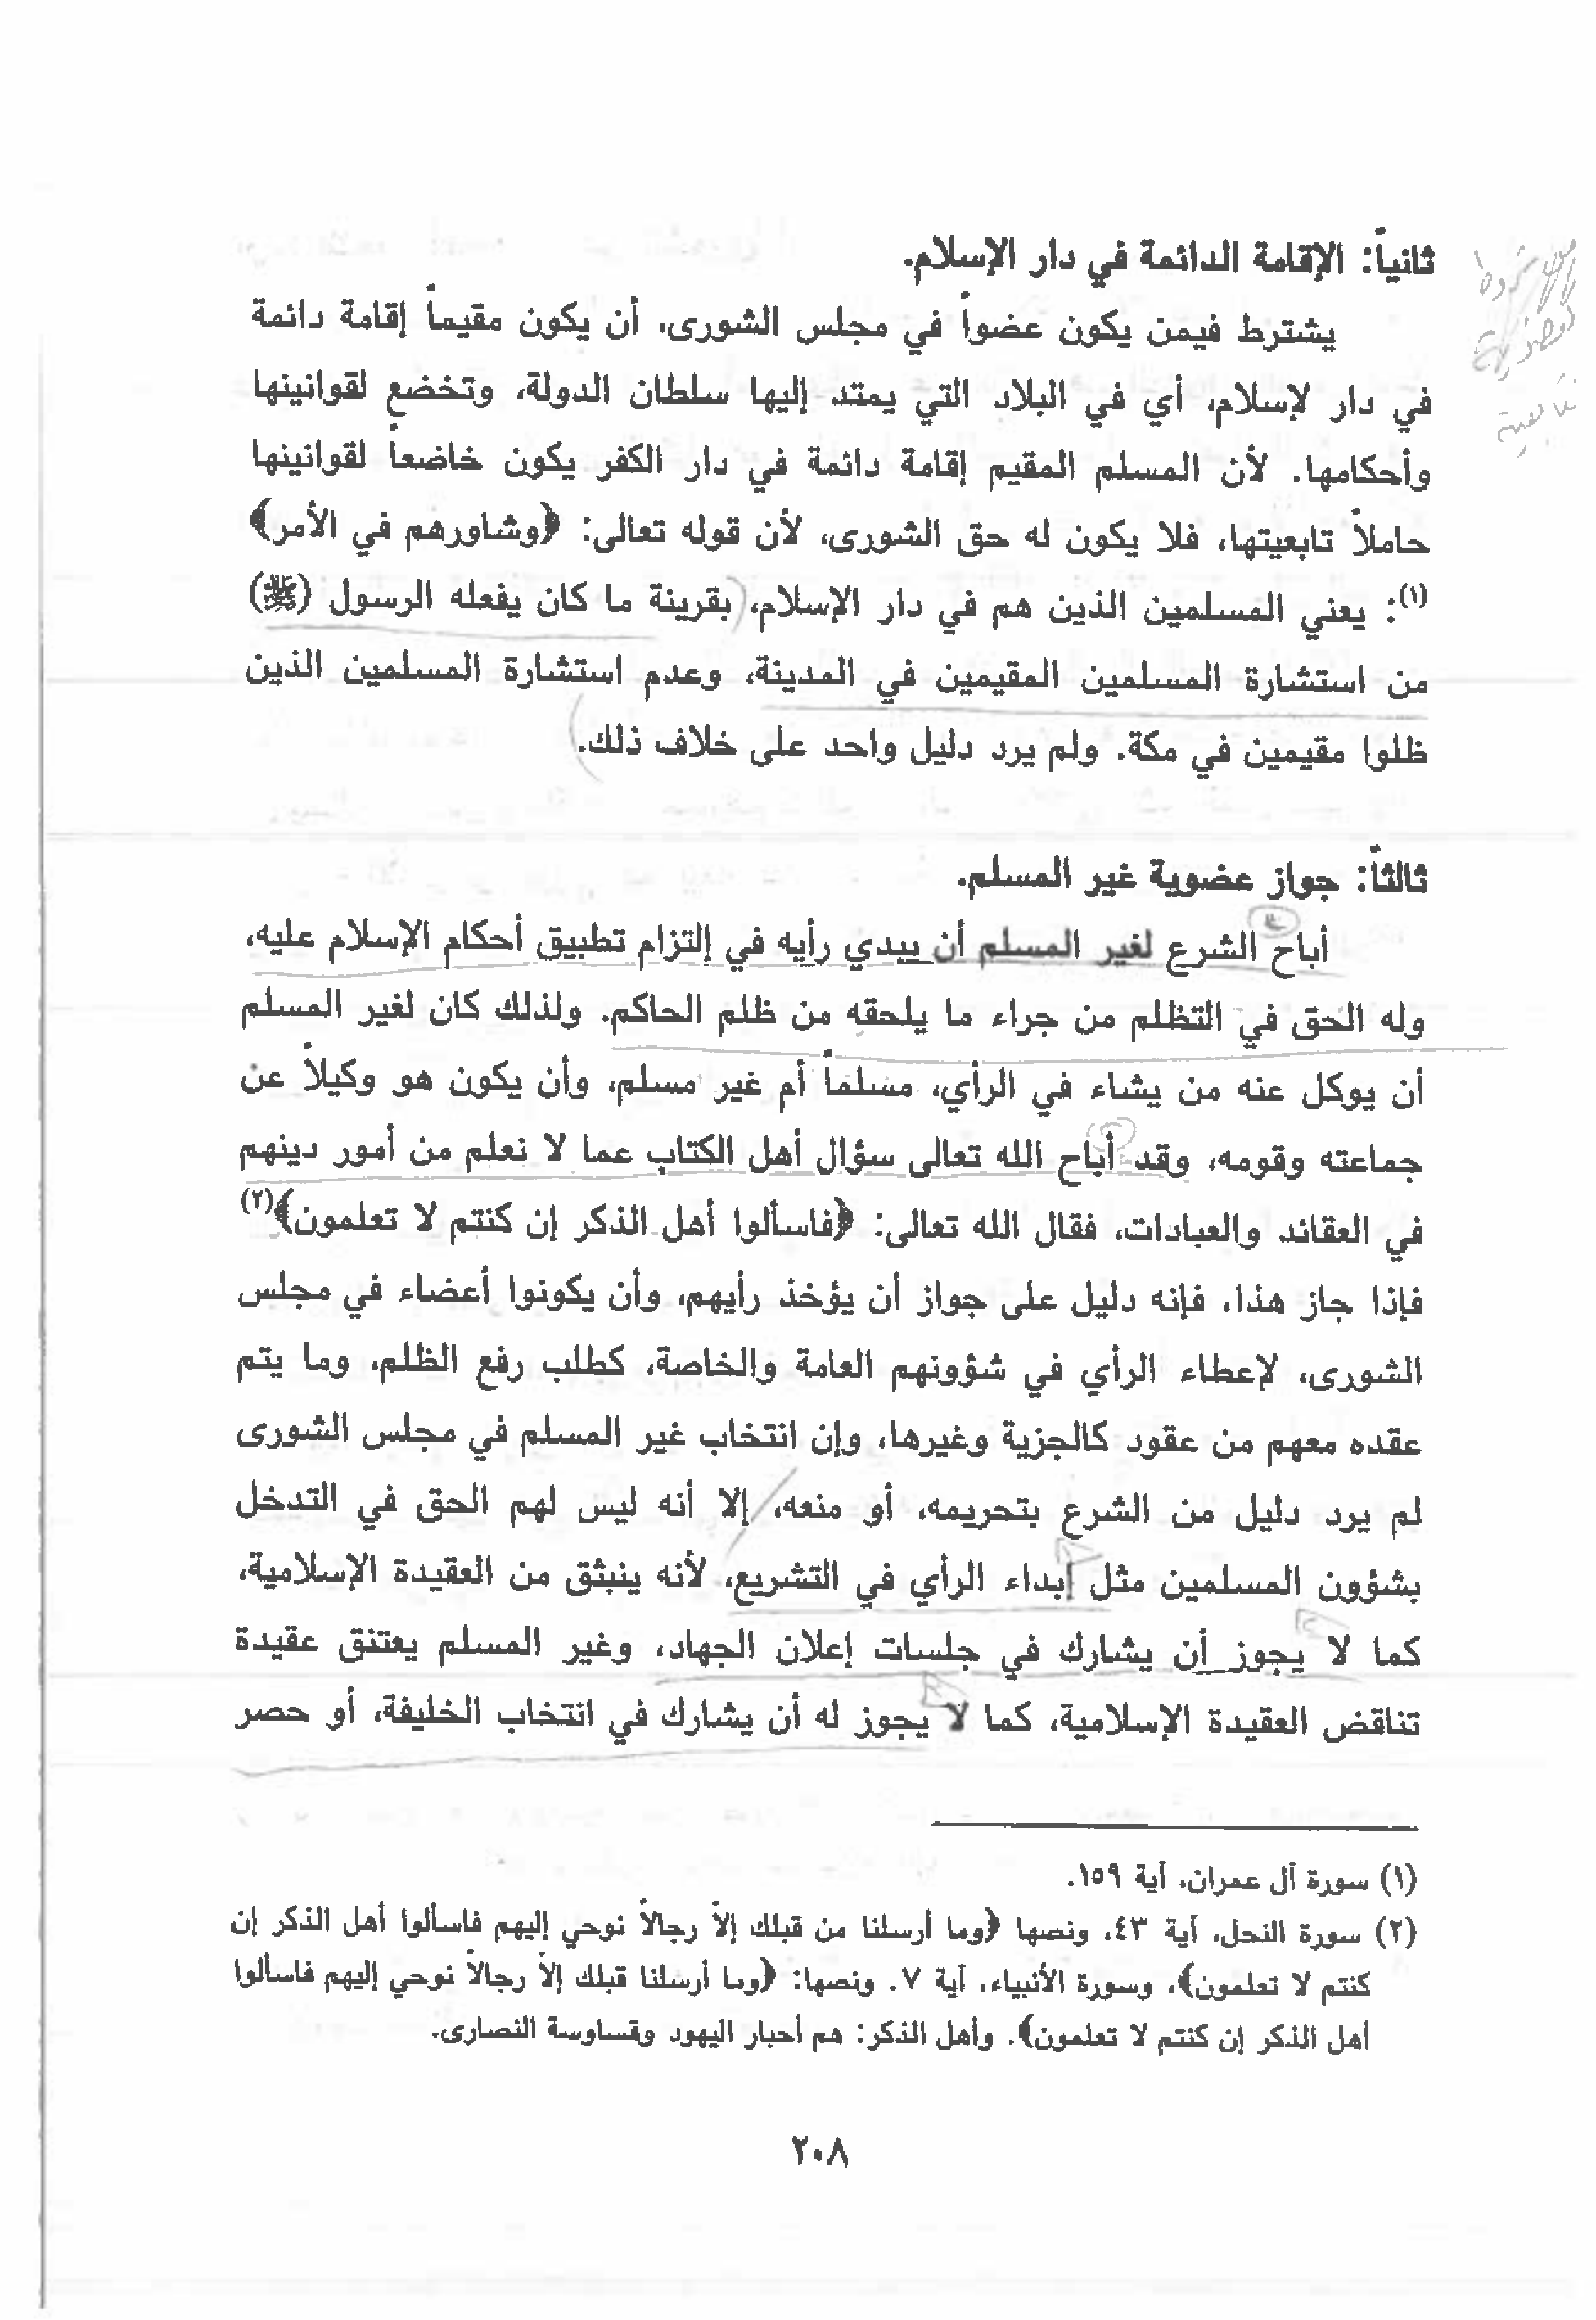 ثانياً: الإقامة الدائمة في دار الإسلام.
يشترط فيمن يكون عضواً في مجلس الشورى، أن يكون مقيماً إقامة دائمة
في دار لإسلام، أي في البلاد التي يمتد إليها سلطان الدولة، وتخضع لقوانينها
وأحكامها. لأن المسلم المقيم إقامة دائمة في دار الكفر يكون خاضعاً لقوانينها
حاملاً تابعيتها، فلا يكون له حق الشورى، لأن قوله تعالى: ﴿وشاورهم في الأمر﴾
(١): يعني المسلمين الذين هم في دار الإسلام، بقرينة ما كان يفعله الرسول (ﷺ)
من استشارة المسلمين المقيمين في المدينة، وعدم استشارة المسلمين الذين
ظلوا مقيمين في مكة. ولم يرد دليل واحد على خلاف ذلك.
ثالثاً: جواز عضوية غير المسلم.
أباح الشرع لغير المسلم أن يبدي رأيه في إلتزام تطبيق أحكام الإسلام عليه،
وله الحق في التظلم من جراء ما يلحقه من ظلم الحاكم. ولذلك كان لغير المسلم
أن يوكل عنه من يشاء في الرأي، مسلماً أم غير مسلم، وأن يكون هو وكيلاً عن
جماعته وقومه، وقد أباح الله تعالى سؤال أهل الكتاب عما لا نعلم من أمور دينهم
في العقائد والعبادات، فقال الله تعالى: ﴿فاسألوا أهل الذكر إن كنتم لا تعلمون﴾(٢)
فإذا جاز هذا، فإنه دليل على جواز أن يؤخذ رأيهم، وأن يكونوا أعضاء في مجلس
الشورى، لإعطاء الرأي في شؤونهم العامة والخاصة، كطلب رفع الظلم، وما يتم
عقده معهم من عقود كالجزية وغيرها، وإن انتخاب غير المسلم في مجلس الشورى
لم يرد دليل من الشرع بتحريمه، أو منعه، إلا أنه ليس لهم الحق في التدخل
بشؤون المسلمين مثل إبداء الرأي في التشريع، لأنه ينبثق من العقيدة الإسلامية،
كما لا يجوز أن يشارك في جلسات إعلان الجهاد، وغير المسلم يعتنق عقيدة
تناقض العقيدة الإسلامية، كما لا يجوز له أن يشارك في انتخاب الخليفة، أو حصر
(١) سورة آل عمران، آية ١٥٩.
(٢) سورة النحل، آية ٤٣، ونصها ﴿وما أرسلنا من قبلك إلاّ رجالاً نوحي إليهم فاسألوا أهل الذكر إن
كنتم لا تعلمون﴾، وسورة الأنبياء، آية ٧. ونصها: ﴿وما أرسلنا قبلك إلاّ رجالاً نوحي إليهم فاسألوا
أهل الذكر إن كنتم لا تعلمون﴾. وأهل الذكر: هم أحبار اليهود وقساوسة النصارى.
٢٠٨